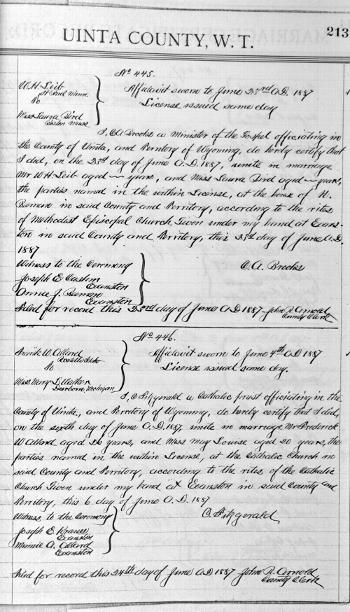 213
UINTA COUNTY, W. T.
No 445.
W. H. Leib
St Paul Minn
to
Miss Laura Bird
Affidavit sworn to June 23rd A.D. 1887
License issued same day
I, C. A. Brooks a Minister of the Gospel officiating in
the County of Uinta, and Territory of Wyoming, do hereby certify that
I did, on the 23rd day of June A.D. 1887, unite in marriage
Mr W H Leib aged — years, and Miss Laura Bird aged — years,
the parties named in the within License, at the house of
in said County and Territory, according to the rites
of Methodist Episcopal Church, Given under my hand at Evans-
ton in said County and Territory, this 23rd day of June A.D.
1887
Witness to the Ceremony
C. A. Brooks
Joseph E
Evanston
Annie
Evanston
Filed for record this 23rd day of June A.D 1887 - John R. Arnold
County Clerk
No 446.
to
Miss Mary L
Dearborn, Michigan
Affidavit sworn to June 4th A.D 1887
License issued same day.
I, C Fitzgerald a Catholic priest officiating in the
County of Uinta, and Territory of Wyoming, do hereby certify that I did,
on the sixth day of June A.D. 1887, unite in marriage Mr Frederick
W aged 26 years, and Miss Mary Louise aged 20 years, the
parties named in the within License, at the Catholic Church in
said County and Territory, according to the rites of the Catholic
Church Given under my hand at Evanston in said County and
Territory, this 6 day of June A.D. 1887
Witness, to the Ceremony
C. Fitzgerald
Joseph E
Evanston
Minnie A.
Evanston
Filed for record this 24th day of June A.D. 1887 John R. Arnold
County Clerk